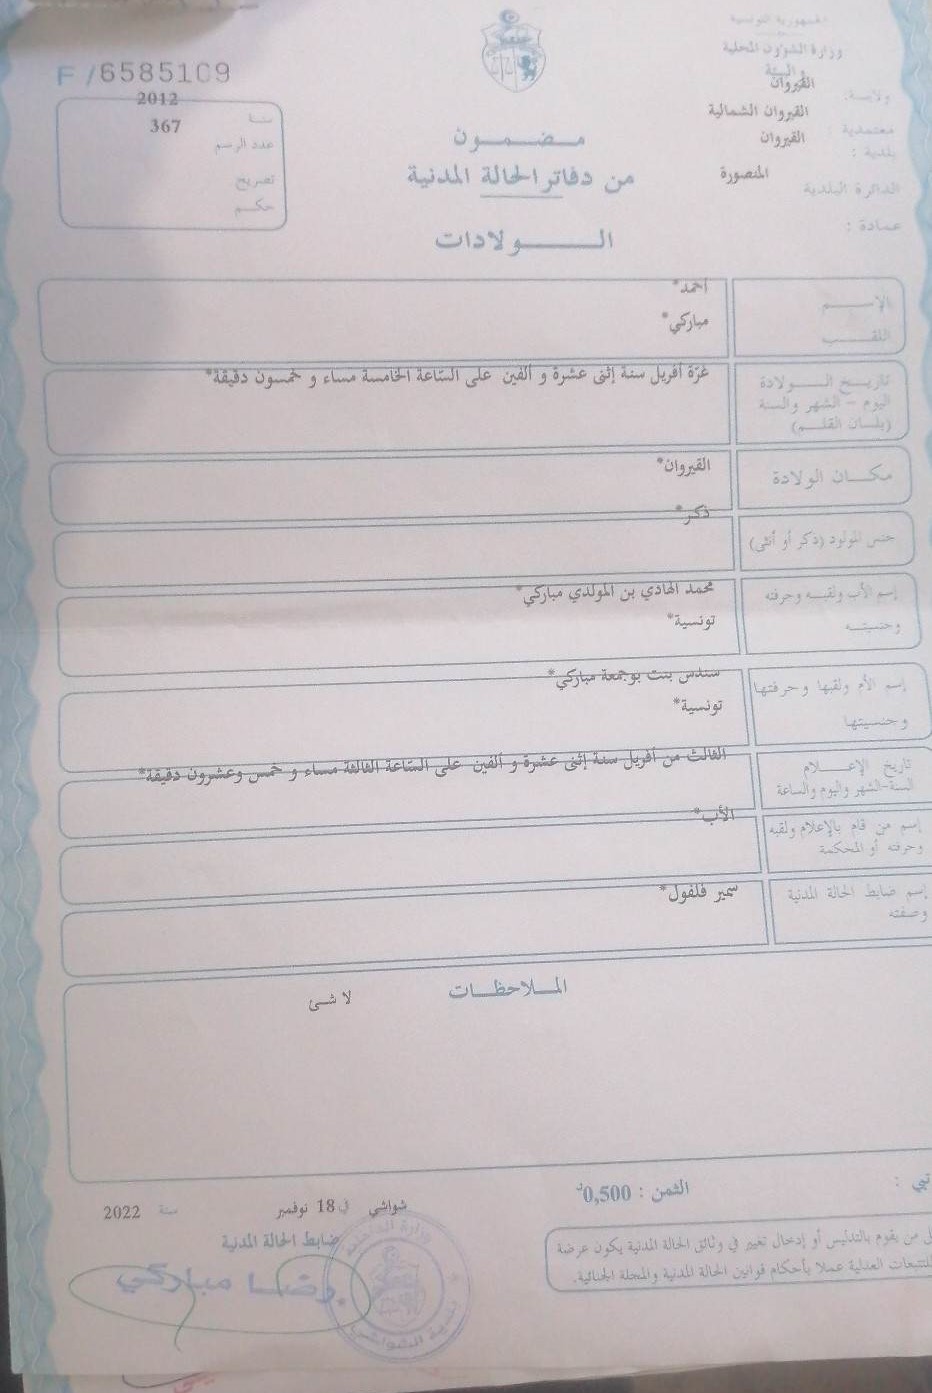 الجمهورية التونسية
وزارة الشؤون المحلية
والبيئة
ولاية: القيروان
معتمدية : القيروان الشمالية
بلدية : القيروان
الدائرة البلدية المنصورة
عمادة :
F /6585109
سنة 2012
عدد الرسم 367
تصريح
حكم
مضمون
من دفاتر الحالة المدنية
الولادات
الإسم أحمد*
اللقب مباركي*
تاريخ الولادة غرّة أفريل سنة إثنى عشرة و ألفين على السّاعة الخامسة مساء و خمسون دقيقة*
اليوم - الشهر والسنة
(بلسان القلم)
مكان الولادة القيروان*
جنس المولود (ذكر أو أنثى) ذكر*
إسم الأب ولقبه وحرفته محمد الهادي بن المولدي مباركي*
وجنسيته تونسية*
إسم الأم ولقبها وحرفتها سندس بنت بوجمعة مباركي*
وجنسيتها تونسية*
تاريخ الإعلام الثالث من أفريل سنة إثنى عشرة و ألفين على السّاعة الثالثة مساء و خمس وعشرون دقيقة*
السنة-الشهر واليوم والساعة
إسم من قام بالإعلام ولقبه الأب*
وحرفته أو المحكمة
إسم ضابط الحالة المدنية سمير فلفول*
وصفته
الملاحظات
لا شئ
الثمن : 0,500د
شواشي في 18 نوفمبر سنة 2022
ضابط الحالة المدنية
رضا مباركي
وزارة الداخلية
بلدية الشواشي
من يقوم بالتدليس أو إدخال تغيير في وثائق الحالة المدنية يكون عرضة
للتتبعات العدلية عملا بأحكام قوانين الحالة المدنية والمجلة الجنائية.